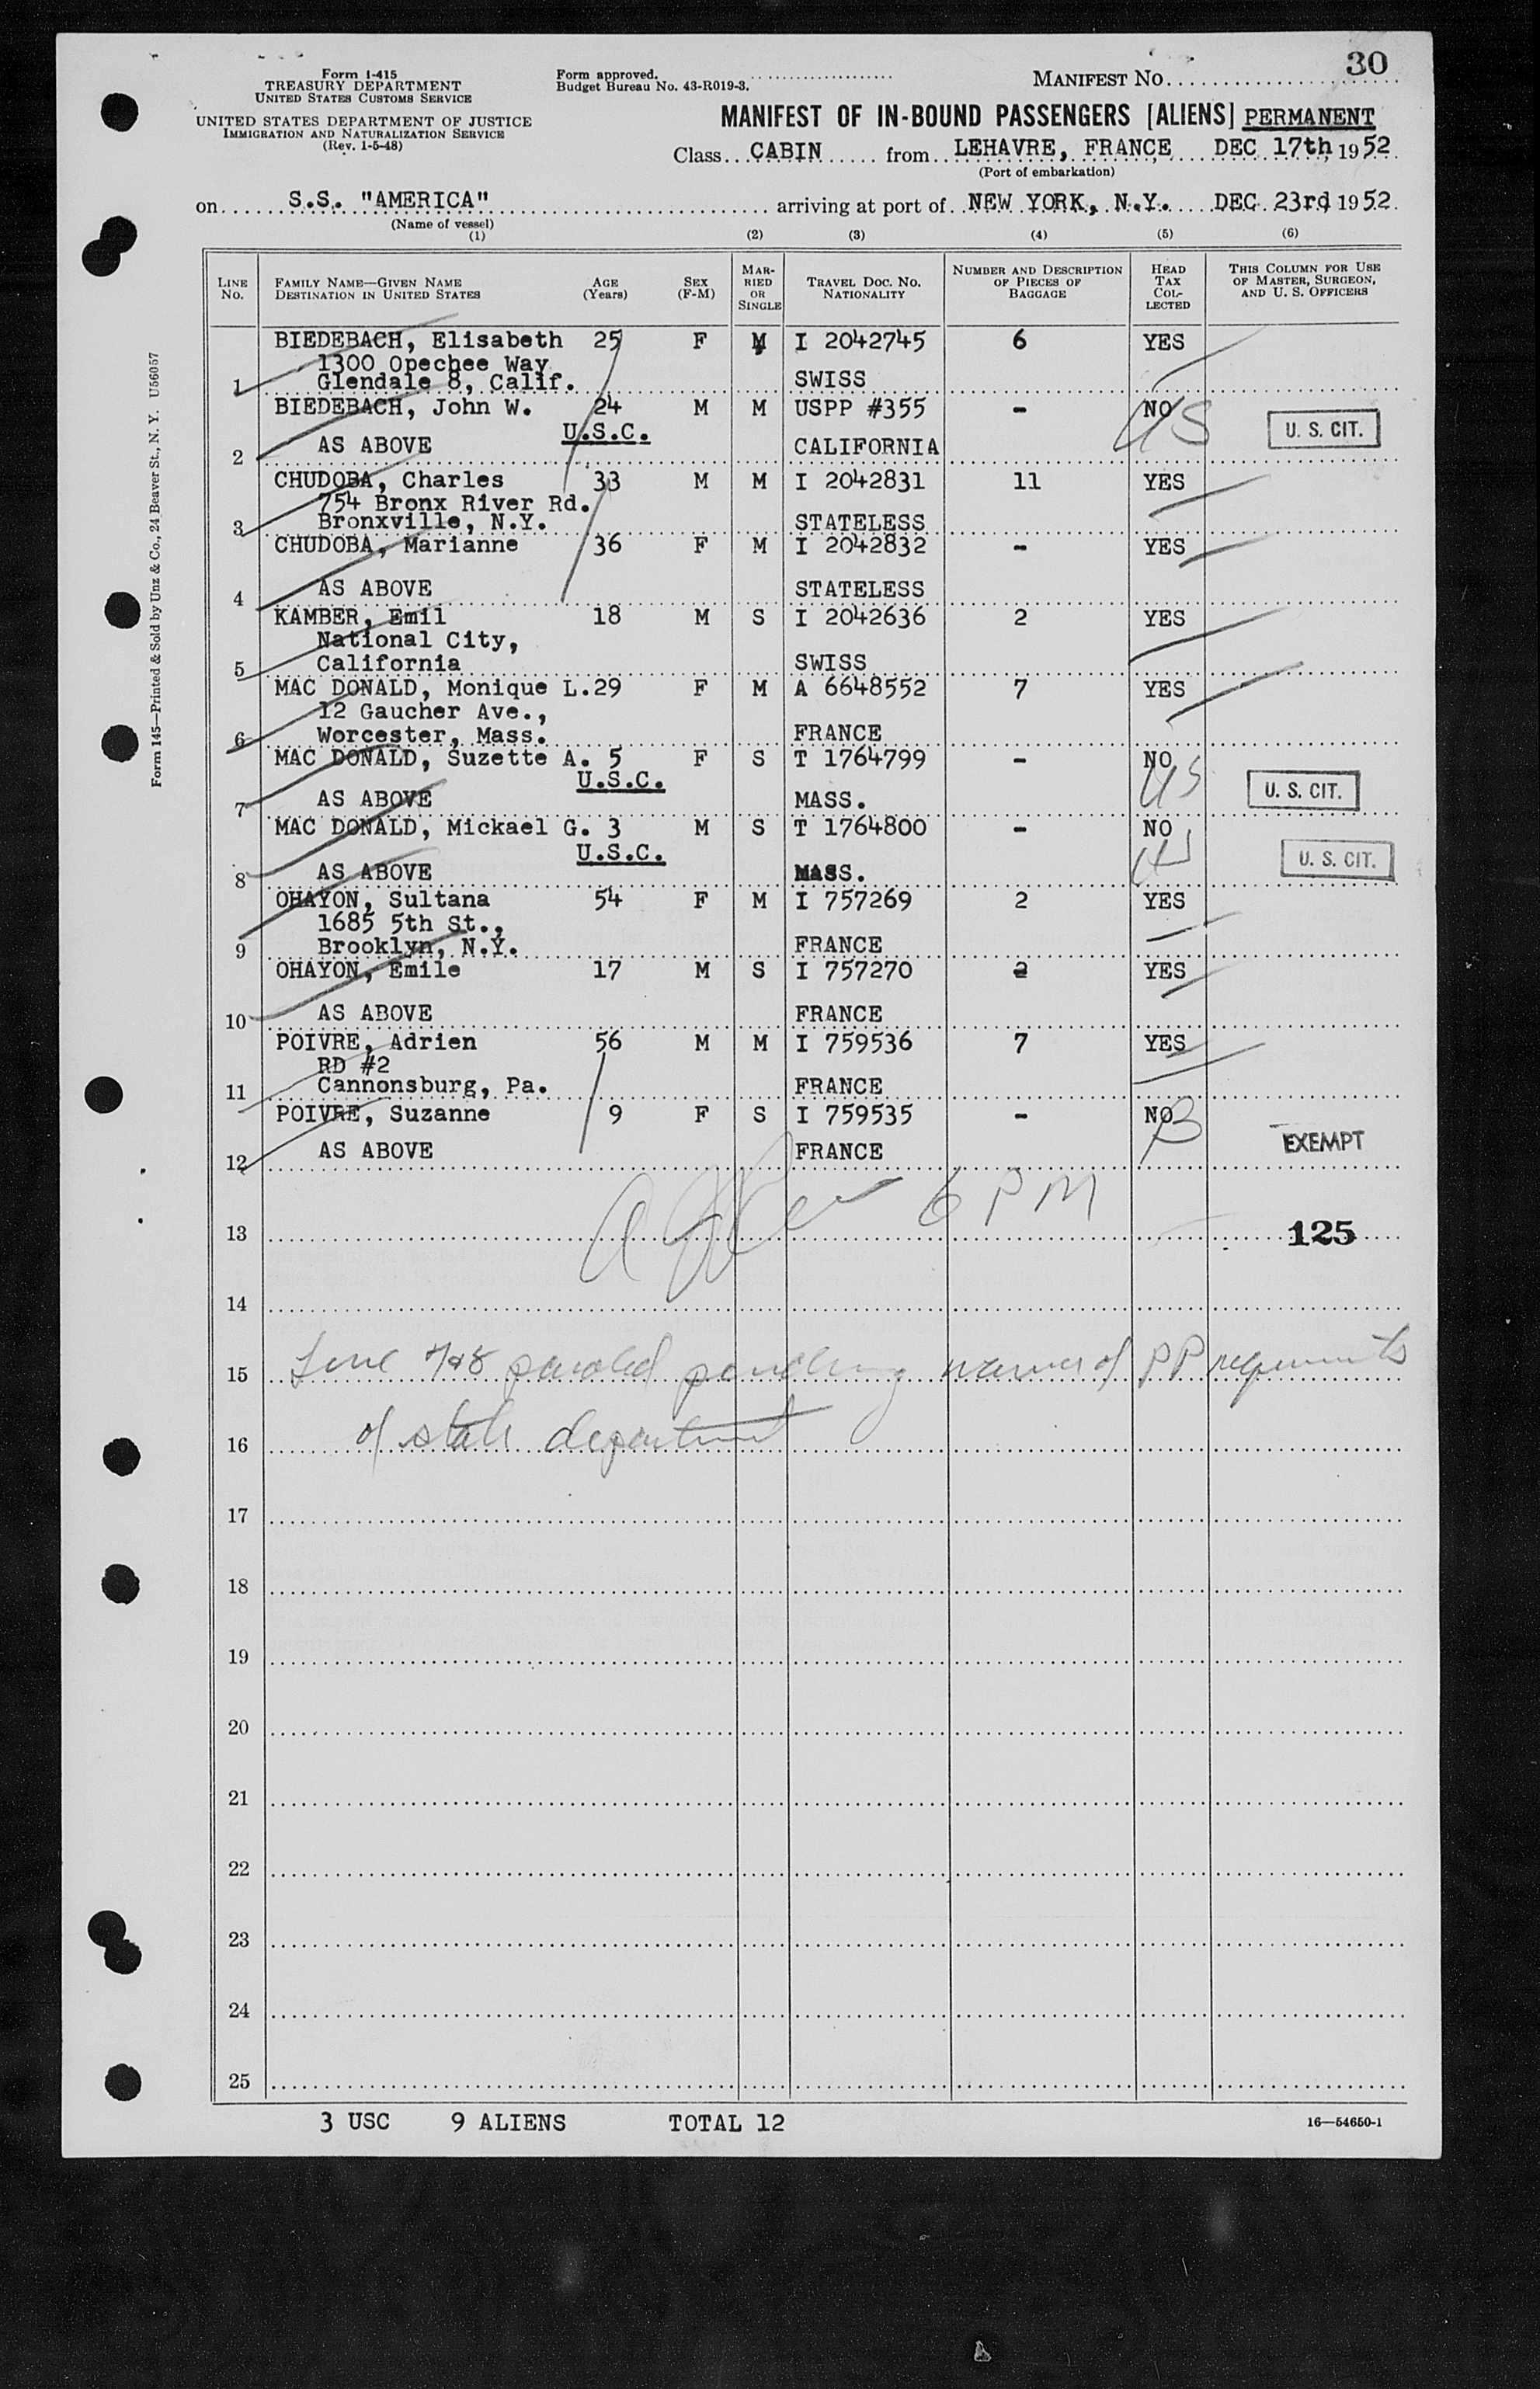 30
Form I-415
TREASURY DEPARTMENT
UNITED STATES CUSTOMS SERVICE
UNITED STATES DEPARTMENT OF JUSTICE
IMMIGRATION AND NATURALIZATION SERVICE
(Rev. 1-5-48)
Form approved.
Budget Bureau No. 43-R019-3.
MANIFEST NO.
MANIFEST OF IN-BOUND PASSENGERS [ALIENS] PERMANENT
Class CABIN from LEHAVRE, FRANCE DEC 17th, 1952
(Port of embarkation)
on S.S. "AMERICA" arriving at port of NEW YORK, N.Y. DEC 23rd 1952
(Name of vessel)
(1) (2) (3) (4) (5) (6)
LINE No. FAMILY NAME—GIVEN NAME DESTINATION IN UNITED STATES AGE (Years) SEX (F-M) MARRIED OR SINGLE TRAVEL DOC. NO. NATIONALITY NUMBER AND DESCRIPTION OF PIECES OF BAGGAGE HEAD TAX COLLECTED THIS COLUMN FOR USE OF MASTER, SURGEON, AND U. S. OFFICERS
BIEDEBACH, Elisabeth 25 F M I 2042745 6 YES
1300 Opechee Way
1 Glendale 8, Calif. SWISS
BIEDEBACH, John W. 24 M M USPP #355 - NO US
U.S.C. U. S. CIT.
2 AS ABOVE CALIFORNIA
CHUDOBA, Charles 33 M M I 2042831 11 YES
754 Bronx River Rd.
3 Bronxville, N.Y. STATELESS
CHUDOBA, Marianne 36 F M I 2042832 - YES
4 AS ABOVE STATELESS
KAMBER, Emil 18 M S I 2042636 2 YES
National City,
5 California SWISS
MAC DONALD, Monique L. 29 F M A 6648552 7 YES
12 Gaucher Ave.,
6 Worcester, Mass. FRANCE
MAC DONALD, Suzette A. 5 F S T 1764799 - NO US
U.S.C. U. S. CIT.
7 AS ABOVE MASS.
MAC DONALD, Mickael G. 3 M S T 1764800 - NO
U.S.C. U. S. CIT.
8 AS ABOVE MASS.
OHAYON, Sultana 54 F M I 757269 2 YES
1685 5th St.,
9 Brooklyn, N.Y. FRANCE
OHAYON, Emile 17 M S I 757270 2 YES
10 AS ABOVE FRANCE
POIVRE, Adrien 56 M M I 759536 7 YES
RD #2
11 Cannonsburg, Pa. FRANCE
POIVRE, Suzanne 9 F S I 759535 - NO
EXEMPT
12 AS ABOVE FRANCE
After 6 PM
13 125
14
15 Line 7&8 paroled pending waiver of PP requirements
16 of state department
17
18
19
20
21
22
23
24
25
3 USC 9 ALIENS TOTAL 12
16—54650-1
Form 145—Printed & Sold by Unz & Co., 24 Beaver St., N. Y. U56057